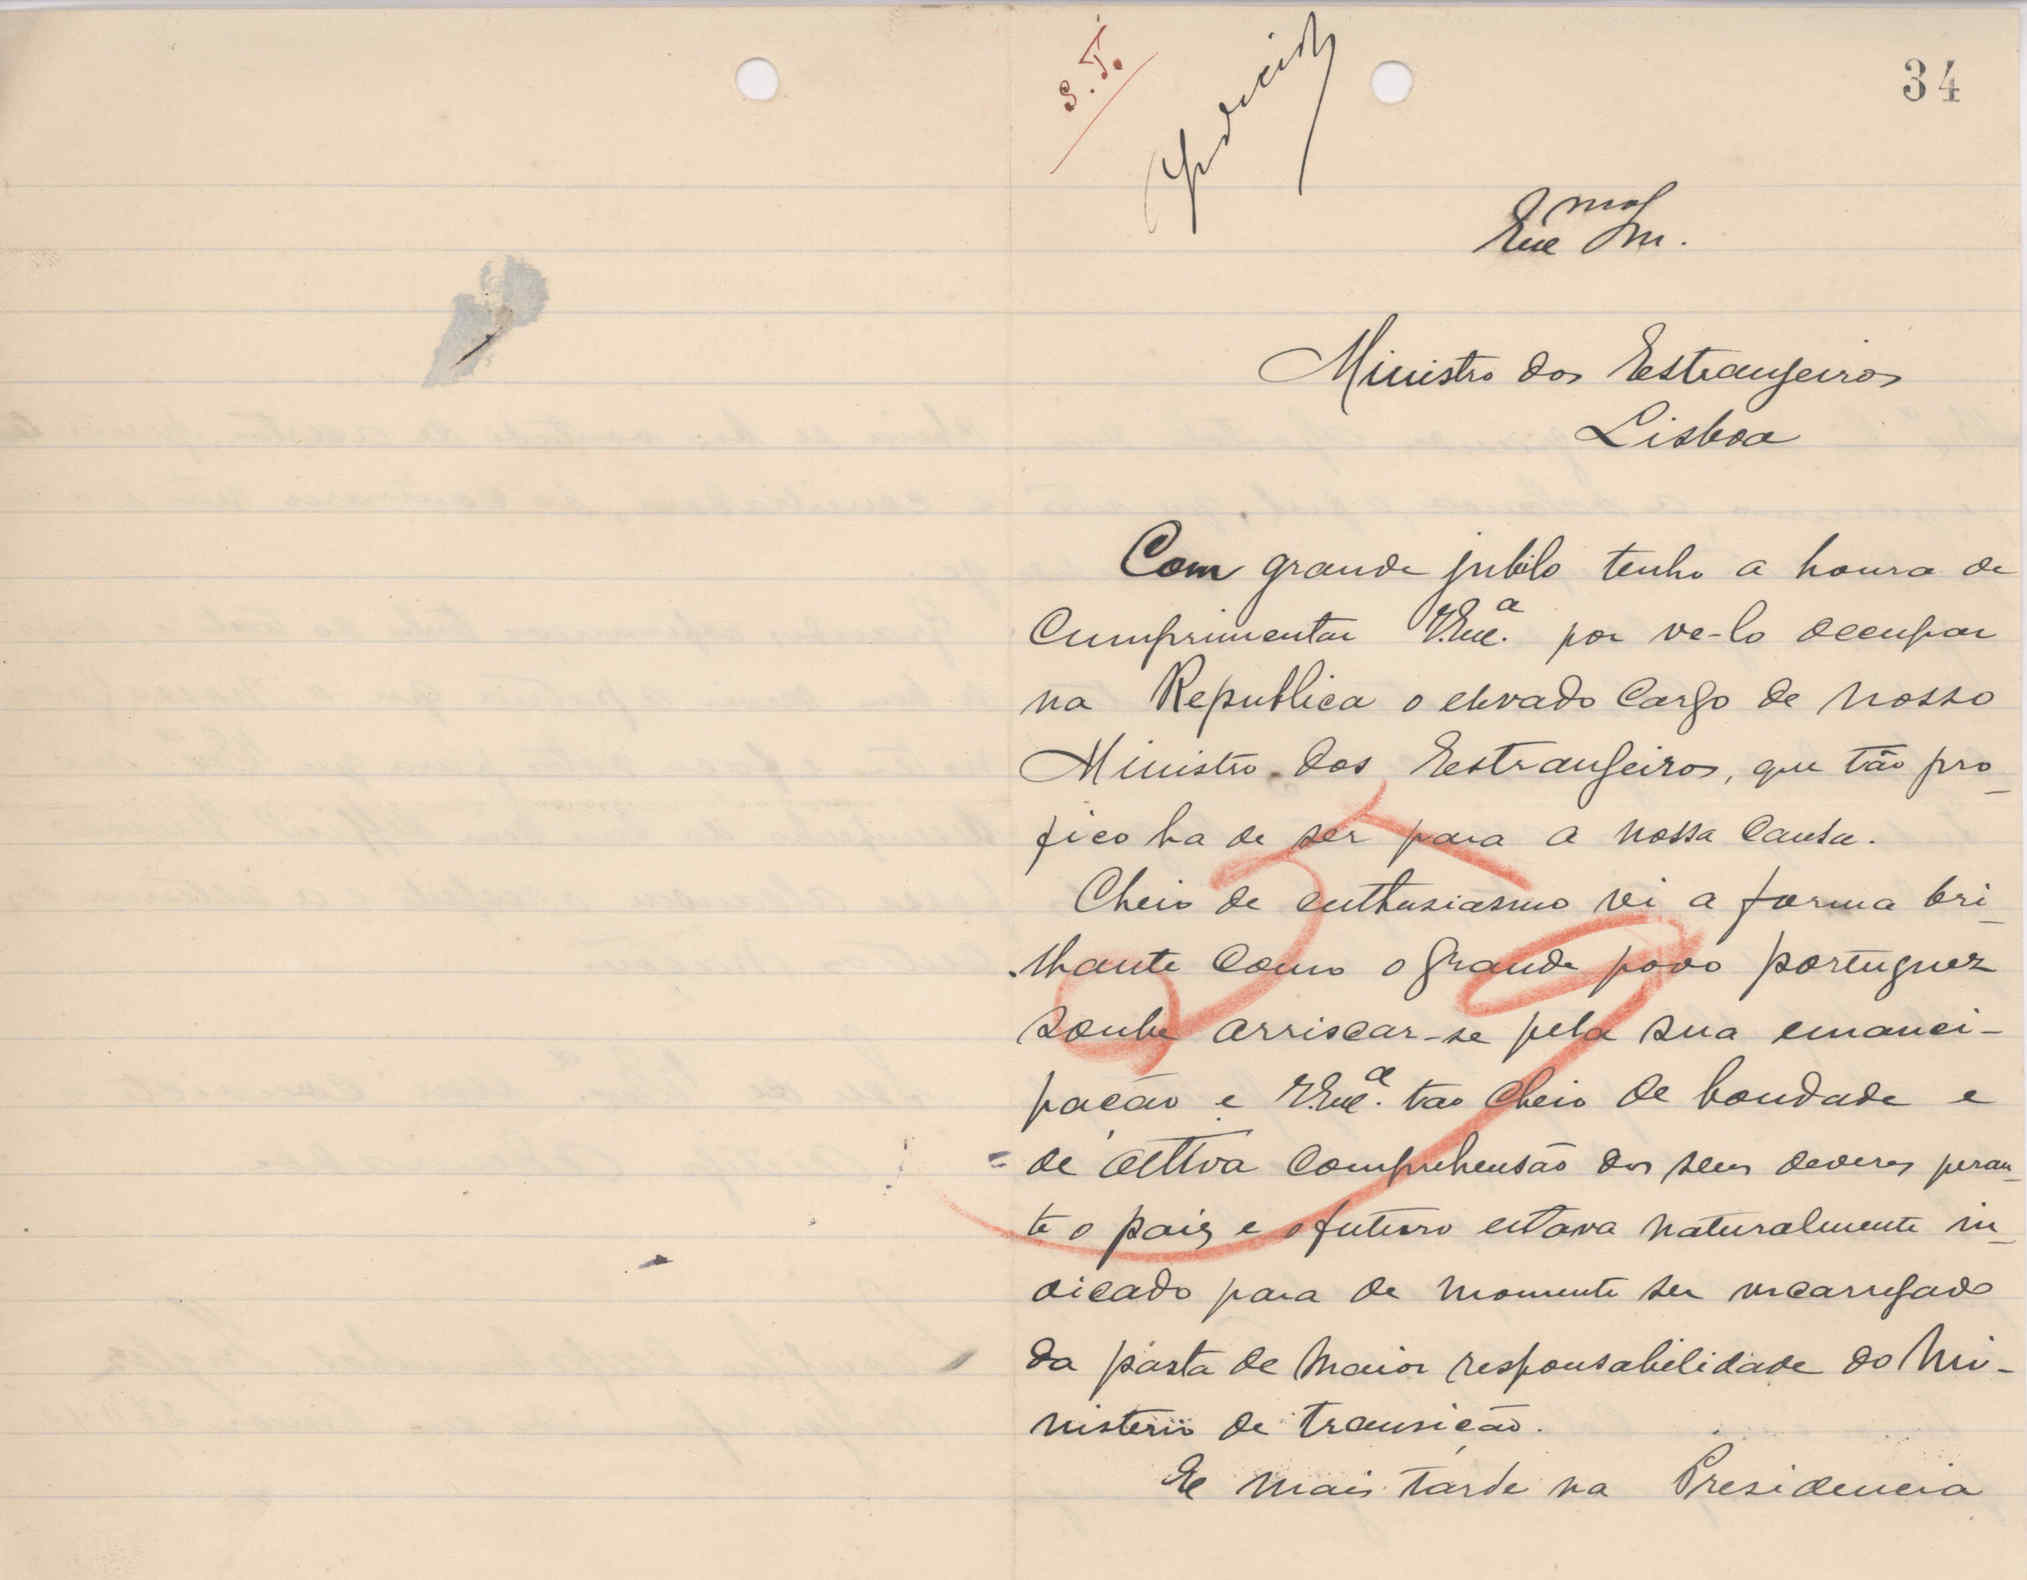 S. T.
34
Exmo Snr.
Ministro dos Estrangeiros
Lisboa
Com grande jubilo tenho a honra de
cumprimentar V. Exc.a por ve-lo occupar
na Republica o elevado cargo de nosso
Ministro dos Estrangeiros, que tão pro_
fico ha de ser para a nossa causa.
Cheio de enthusiasmo vi a forma bri_
lhante como o grande povo portuguez
soube arriscar-se pela sua emanci-
pação e V. Exc.a tao cheio de bondade e
de comprehensão dos seus deveres peran_
te o paiz e o futuro estava naturalmente in_
dicado para de momento ser encarregado
da pasta de maior responsabilidade do Mi-
nisterio de transição.
E mais tarde na Presidencia